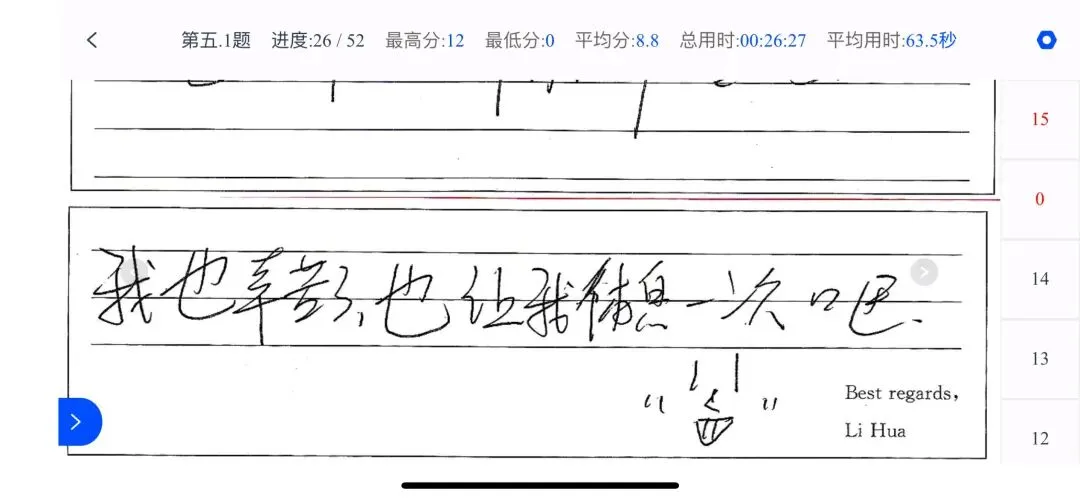 第五.1题 进度:26 / 52 最高分:12 最低分:0 平均分:8.8 总用时:00:26:27 平均用时:63.5秒
15
0
我也辛苦了,也让我休息一次吧.
14
13
Best regards,
Li Hua
12